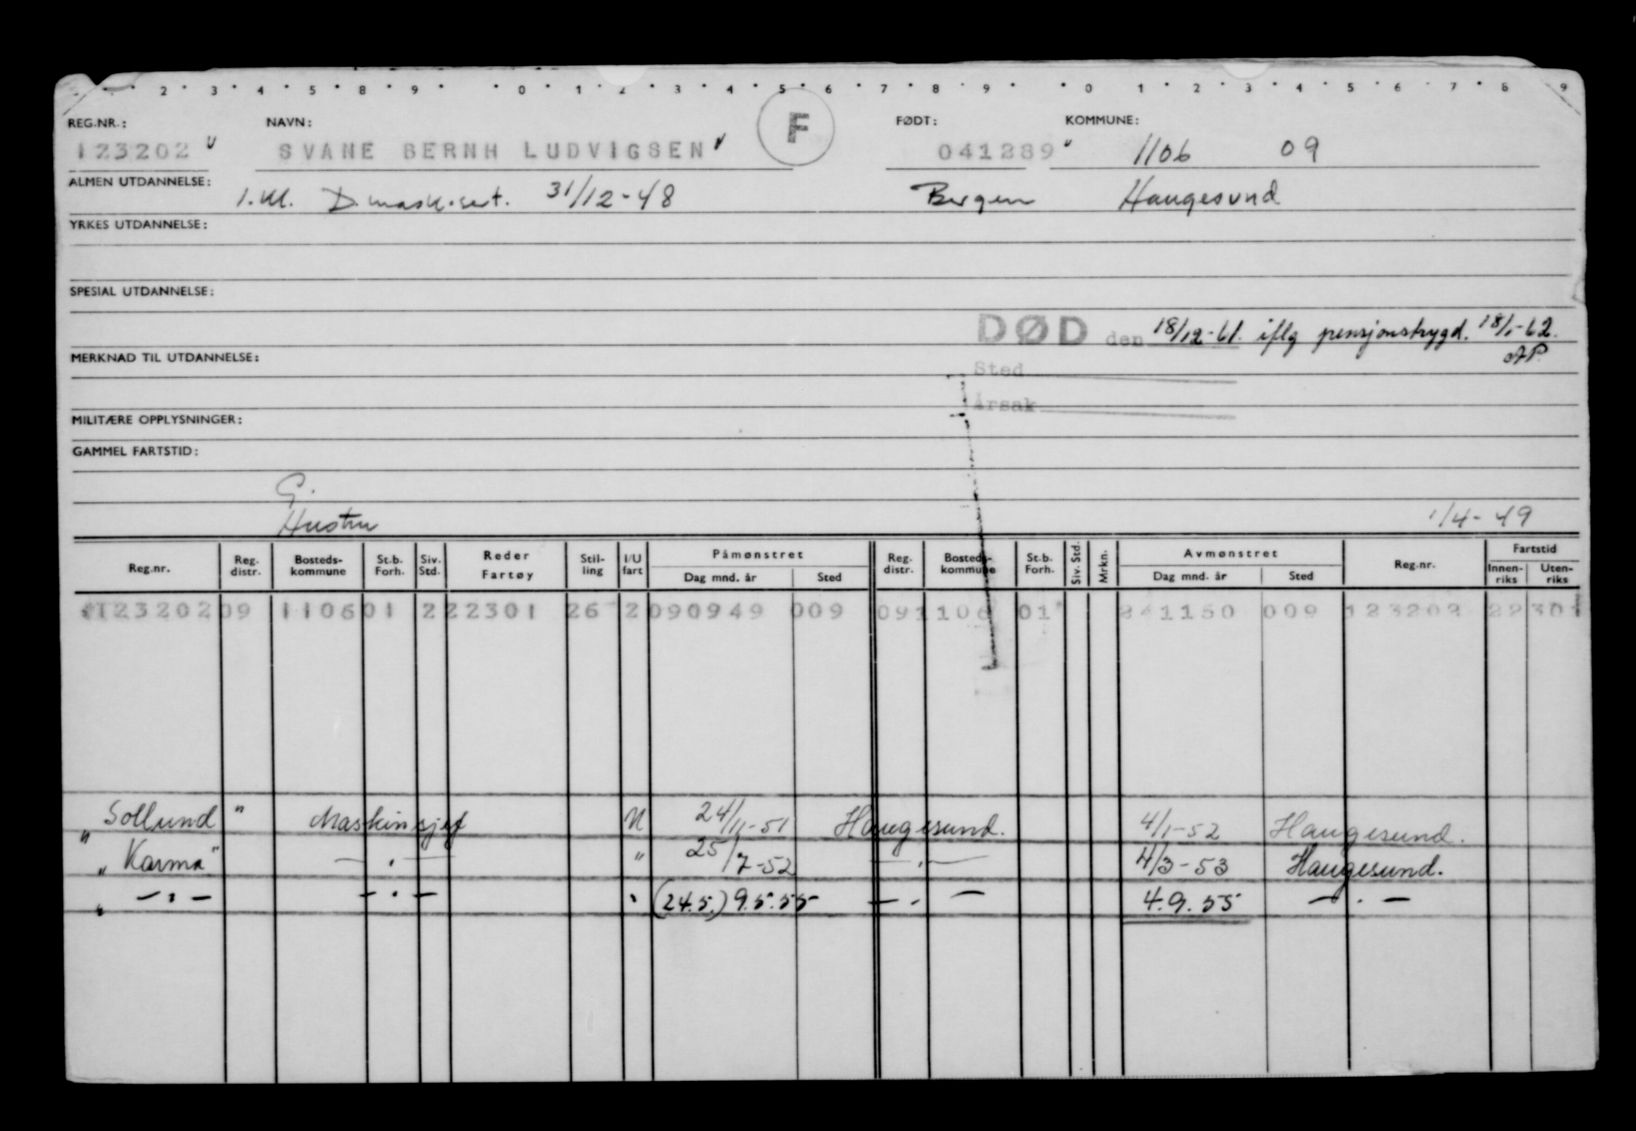 2 · 3 · 4 · 5 · 8 · 9 · · 0 · 1 · 2 · 3 · 4 · 5 · 6 · 7 · 8 · 9 · · 0 1 · 2 · 3 · 4 · 5 · 6 · 7 · 8 9
REG.NR.: NAVN: F FØDT: KOMMUNE:
123202 SVANE BERNH LUDVIGSEN 041289 1106 09
ALMEN UTDANNELSE: 1. kl. D. mask.sert. 31/12-48 Bergen Haugesund
YRKES UTDANNELSE:
SPESIAL UTDANNELSE:
DØD den 18/12-61. iflg pensjonstrygd. 18/1-62.
MERKNAD TIL UTDANNELSE: AP.
Sted
Årsak
MILITÆRE OPPLYSNINGER:
GAMMEL FARTSTID:
G.
Hustru 1/4-49
Reg.nr. Reg. distr. Bosteds- kommune St.b. Forh. Siv. Std. Reder Fartøy Stil- ling I/U fart Påmønstret Dag mnd. år Sted Reg. distr. Bosteds- kommune St.b. Forh. Siv. Std. Mrkn. Avmønstret Dag mnd. år Sted Reg.nr. Fartstid Innen- riks Uten- riks
123202 09 1106 01 2 22301 26 2 090949 009 09 1106 01 241150 009 123202 22 301
"Sollund" Maskinsjef U 24/11-51 Haugesund. 4/1-52 Haugesund.
"Karma" — . — " 25/7-52 — . — 4/3-53 Haugesund.
" — . — — . — " (24.5.) 9.5.55 — . — 4.9.55 — . —